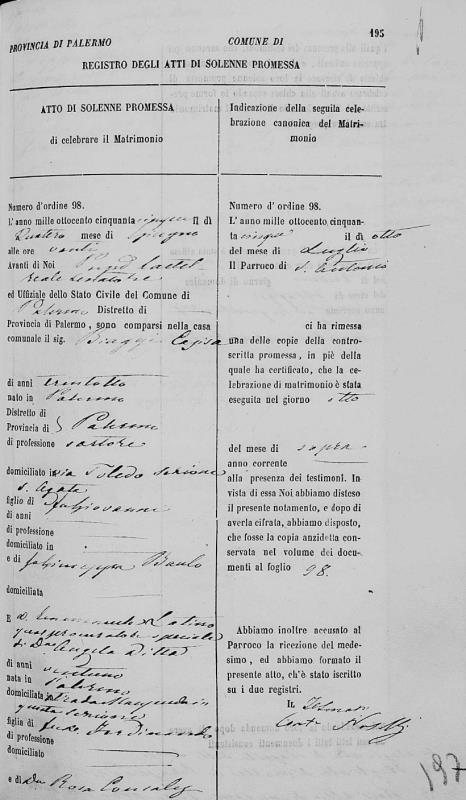 195
PROVINCIA DI PALERMO
COMUNE DI
REGISTRO DEGLI ATTI DI SOLENNE PROMESSA
ATTO DI SOLENNE PROMESSA
di celebrare il Matrimonio
Numero d'ordine 98.
L'anno mille ottocento cinquanta cinque Il dì
Quattro mese di Giugno
alle ore venti
Avanti di Noi
ed Uffiziale dello Stato Civile del Comune di
Palermo Distretto di
Provincia di Palermo, sono comparsi nella casa
comunale il sig. Biaggio
di anni trentotto
nato in Palermo
Distretto di
Provincia di Palermo
di professione sartore
domiciliato via Toledo sezione
S. Agata
figlio di fu Giovanni
di anni
di professione
domiciliato in
e di fu Giuseppa
domiciliata
E D. Emmanuele Latino
qual procuratore speciale
di Da Angela
di anni ventuno
nata in Palermo
domiciliata strada
sezione
figlia di
di professione
domiciliato
e di Da Rosa Consales
Indicazione della seguita cele-
brazione canonica del Matri-
monio
Numero d'ordine 98.
L'anno mille ottocento cinquan-
ta cinque il dì otto
del mese di Luglio
Il Parroco di S. Antonio
ci ha rimessa
una delle copie della contro-
scritta promessa, in piè della
quale ha certificato, che la ce-
lebrazione di matrimonio è stata
eseguita nel giorno otto
del mese di sopra
anno corrente
alla presenza dei testimoni. In
vista di essa Noi abbiamo disteso
il presente notamento, e dopo di
averla cifrata, abbiamo disposto,
che fosse la copia anzidetta con-
servata nel volume dei docu-
menti al foglio 98.
Abbiamo inoltre accusato al
Parroco la ricezione del mede-
simo, ed abbiamo formato il
presente atto, ch'è stato iscritto
su i due registri.
IL
197